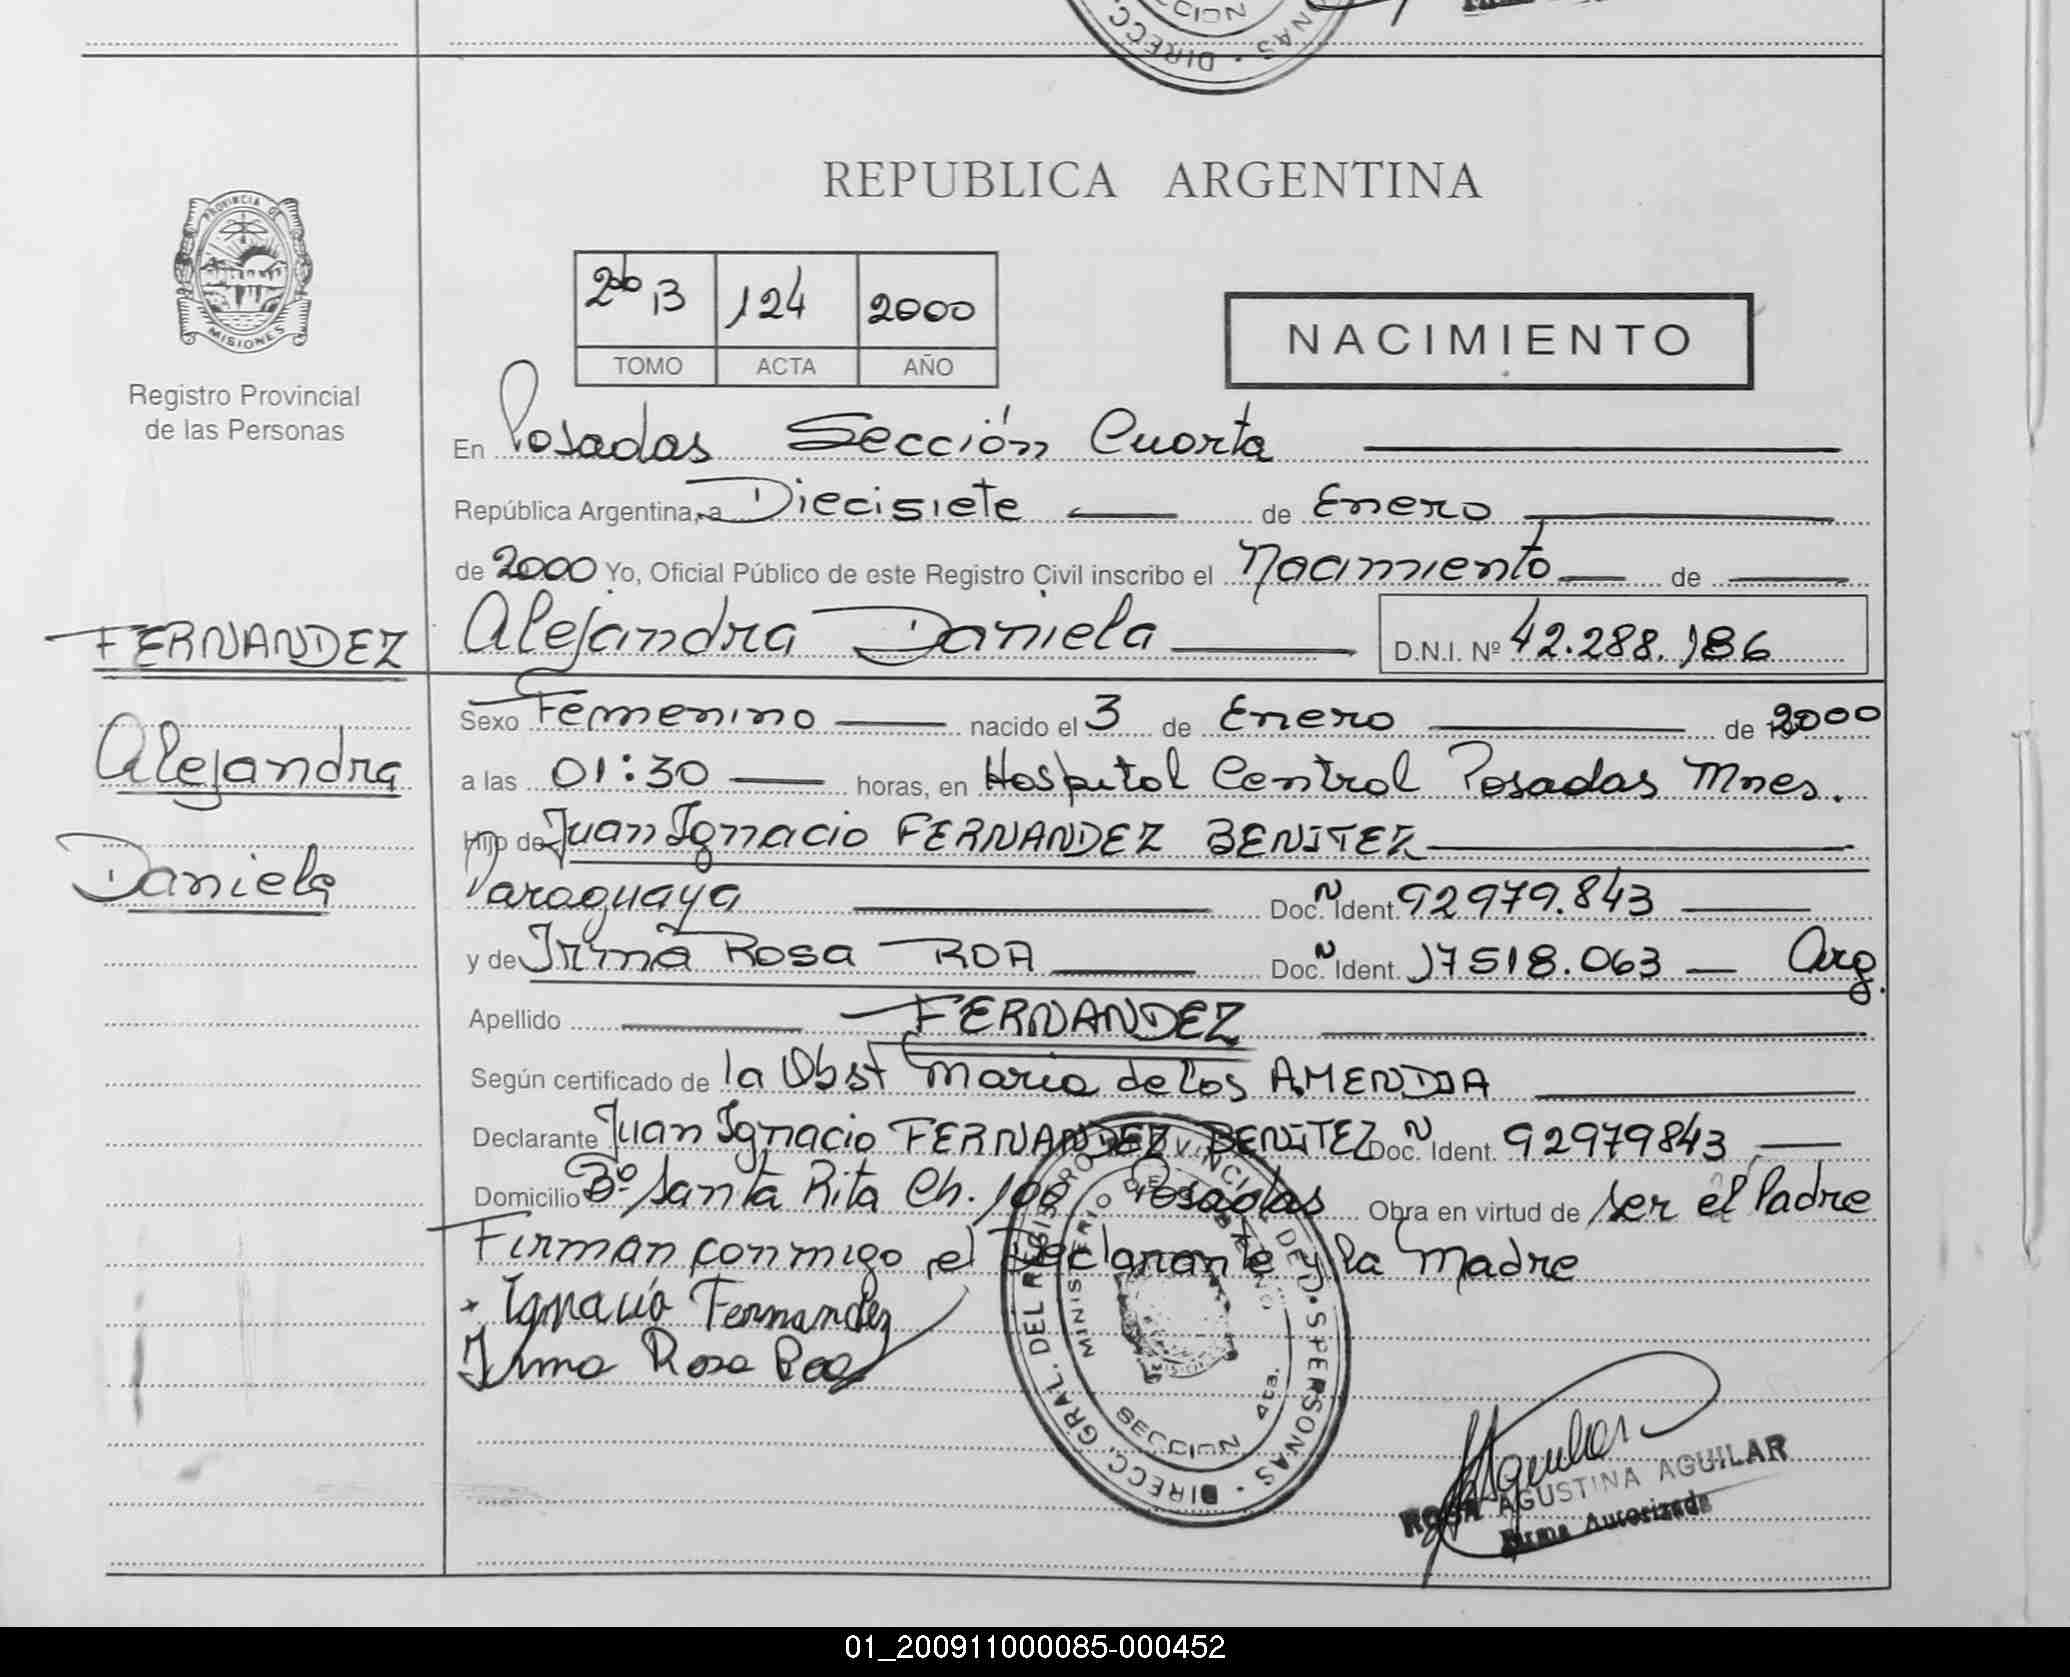 CCION
DIRECC. NAS
REPUBLICA ARGENTINA
PROVINCIA DE MISIONES
Registro Provincial
de las Personas
2do B 124 2000
TOMO ACTA AÑO
NACIMIENTO
En Posadas Sección Cuarta
República Argentina, a Diecisiete de Enero
de 2000 Yo, Oficial Público de este Registro Civil inscribo el Nacimiento de
FERNANDEZ Alejandra Daniela D.N.I. Nº 42.288.186
Alejandra
Daniela
Sexo Femenino nacido el 3 de Enero de 2000
a las 01:30 horas, en Hospital Central Posadas Mnes.
Hijo de Juan Ignacio FERNANDEZ BENITEZ
Paraguaya Doc. N Ident. 92979.843
y de Irma Rosa ROA Doc. N Ident. 17518.063 Arg.
Apellido FERNANDEZ
Según certificado de la Obst Maria de los A. MENDOA
Declarante Juan Ignacio FERNANDEZ BENITEZ Doc. N Ident. 92979843
Domicilio Bº Santa Rita Ch. 100 Posadas Obra en virtud de ser el Padre
Firman conmigo el Declarante y la Madre
Ignacio Fernandez
Irma Rosa Roa
DIRECC. GRAL. DEL REGISTRO PROVINCIAL DE PERSONAS
MINISTERIO DE GOBIERNO
SECCION 4ta.
Aguilar
ROSA AGUSTINA AGUILAR
Firma Autorizada
01_200911000085-000452